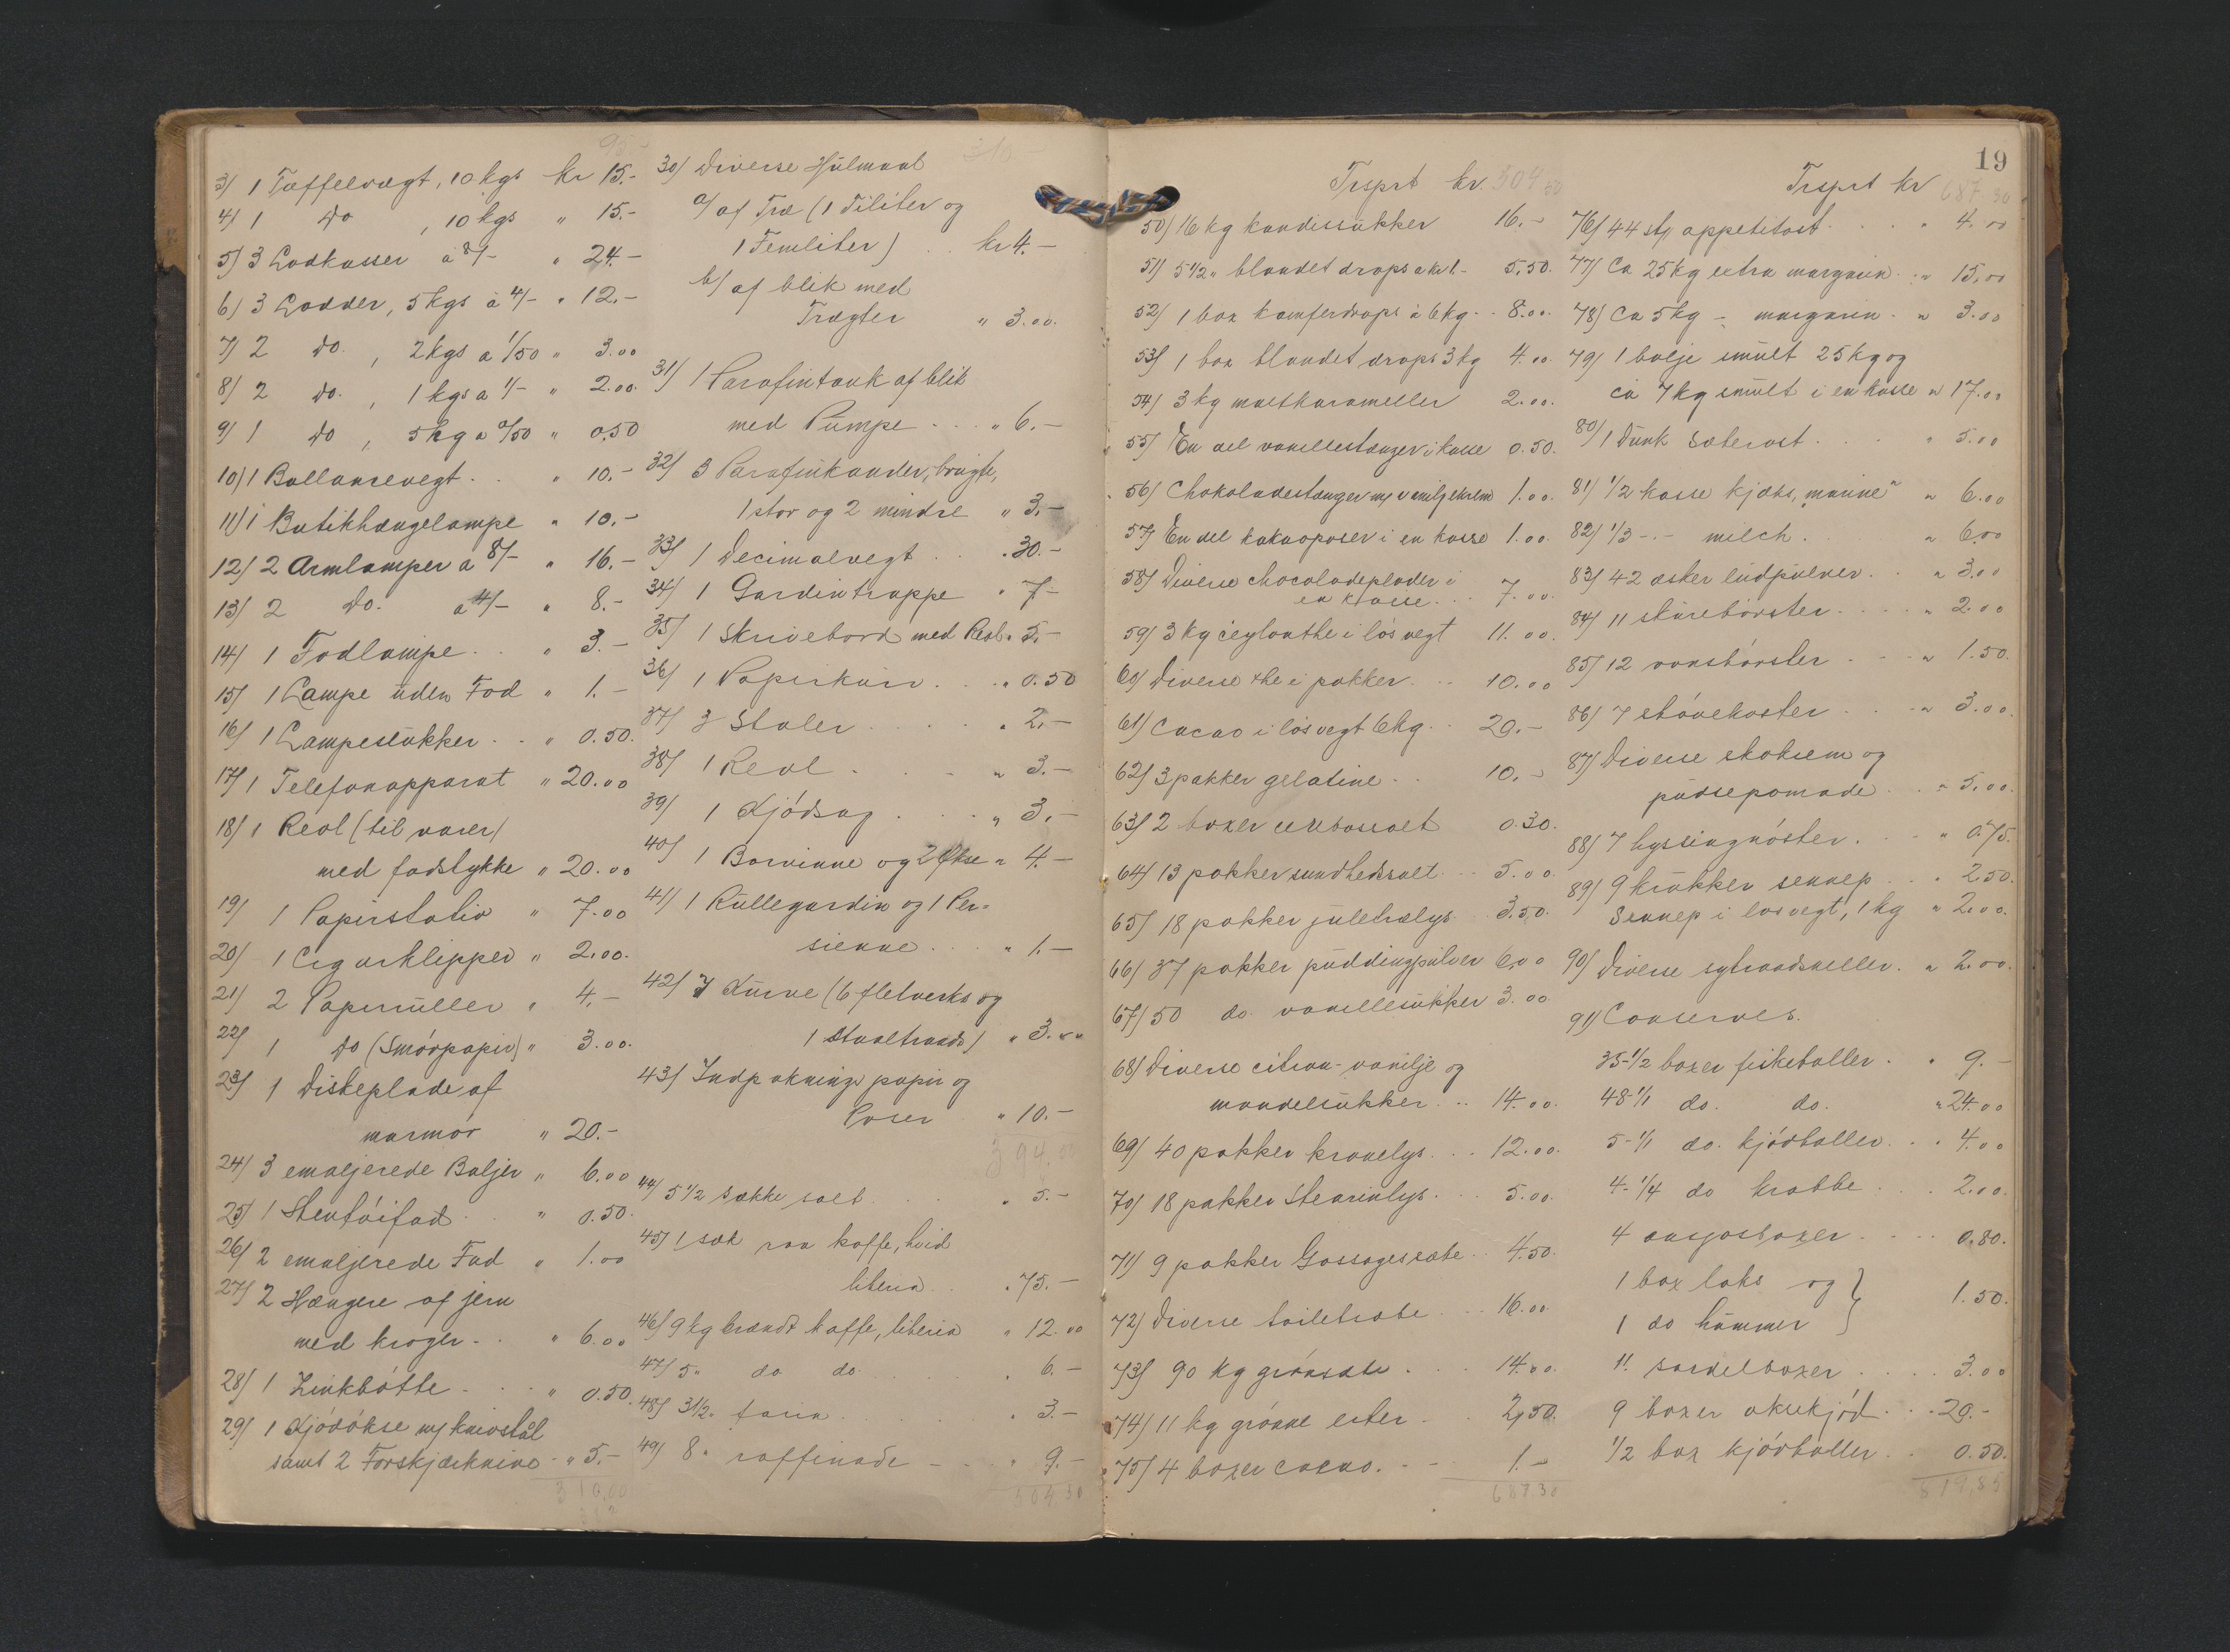 3) 1 Taffelvægt, 10 kgs kr 15.-
4) 1 do , 10 kgs " 15.-
5) 3 Lodkasser à 8/- " 24.-
6) 3 Lodder, 5 kgs à 4/- " 12.-
7) 2 do. , 2 kgs a 1/50 " 3.00
8) 2 do. , 1 kgs a 1/- " 2.00.
9) 1 do , 5 hg a 0/50 " 0.50
10) 1 Ballansevegt . . " 10.-
11) 1 Butikhængelampe " 10.-
12) 2 Armlamper a 8/- " 16.-
13) 2 do. a 4/- " 8.-
14) 1 Fodlampe . . " 3.-
15) 1 Lampe uden Fod " 1.-
16) 1 Lampeslukker . . " 0.50.
17) 1 Telefonapparat " 20.00
18) 1 Reol (til varer)
med fodstykke " 20.00
19) 1 Papirstativ " 7.00
20) 1 Cigarklipper " 2.00.
21) 2 Papirruller " 4.-
22) 1 do (Smörpapir) " 3.00.
23) 1 Diskeplade af
marmor " 20.-
24) 3 emaljerede Baljer " 6.00
25) 1 Stentöifad . . " 0.50.
26) 2 emaljerede Fad " 1.00
27) 2 Hængere af jern
med kroger . . " 6.00
28) 1 Zinkbötte . . . " 0.50.
29) 1 Kjödökse m/ knivstål
samt 2 Forskjærknive . " 5.-
310.00
30) Diverse Hulmaal
a/ af Træ (1 Tiliter og
1 Femliter) . . kr 4.-
b/ af blik med
Trægter " 3.00.
31) 1 Parafintank af blik
med Pumpe . . . " 6.-
32) 3 Parafinkander, brugte,
1 stor og 2 mindre " 3.-
33) 1 Decimalvegt . . . 30.-
34) 1 Gardintrappe " 7-
35) 1 Skrivebord med Reol " 5.-
36) 1 Papirkurv . . . " 0.50
37) 3 Stoler . . . . " 2.-
38) 1 Reol . . . - " 3.-
39) 1 Kjödsag . . . . " 3.-
40) 1 Borvinne og 2 Økse " 4.-
41) 1 Rullegardin og 1 Per-
sienne . . . " 1.-
42) 7 Kurve (6 fletverks og
1 Staaltraads) " 3.00
43) Indpaknings papir og
Poser " 10.-
394.00
44) 5 1/2 sække salt . . . " 5.-
45) 1 sæk raa kaffe, hvid
liberia . . " 75.-
46) 9 kg brændt kaffe, liberia " 12.00
47) 5 " do do . . . " 6.-
48) 3 1/2 " farin . . . " 3.-
49) 8 " raffinade - - - " 9.-
504.30
Trsprt kr. 504 50
50) 16 kg kandissukker 16.-
51) 5 1/2 " blandet drops a kr 1.- 5.50.
52) 1 box kamferdrops à 6 kg . . 8.00.
53) 1 box blandet drops 3 kg 4.00.
54) 3 kg maltkarameller 2.00.
55) En del vanillestænger i kasse 0.50.
56) Chokoladestænger m/ vaniljekrem 1.00.
57) En del kakaoposer i en kasse 1.00.
58) Diverse chocoladeplader i
en kasse . . . 7.00.
59) 3 kg ceylonthe i lös vegt 11.00.
60) Diverse the i pakker . . . 10.00
61) Cacao i lös vegt 6 kg . . 20.-
62) 3 pakker gelatine . . 10.-
63) 2 boxer salt 0.30.
64) 13 pakker sundhedssalt . . . 5.00.
65) 18 pakker juletrælys . . 3.50.
66) 37 pakker puddingpulver 6.00
67) 50 do. vanillesukker 3.00
68) Diverse citron- vanilje og
mandelsukker . . . 14.00.
69) 40 pakker kronelys . . . 12.00.
70) 18 pakker Stearinlys . . . 5.00.
71) 9 pakker Gossagessæbe . . 4.50.
72) Diverse toiletsæbe . . . 16.00
73) 90 kg grönsæbe . . . 14.00.
74) 11 kg grönne erter . . 2.50.
75) 4 boxer cacao . - - 1.-
687.30
19
Trsprt kr 687.30
76) 44 st/ appetitost . . . . " 4.00
77) Ca 25 kg extra margarin . . " 15.00
78) Ca 5 kg - margarin . " 3.00
79) 1 balje smult 25 kg og
ca 7 kg smult i en kasse " 17.00
80) 1 Dunk Sæterost . . . . " 5.00
81) 1/2 kasse kjæks, "marine" " 6.00
82) 1/3 - . - milch . . . " 6.00
83) 42 æsker ludpulver . . " 3.00
84) 11 skurebörster . . . . " 2.00
85) 12 vansbörster . - - " 1.50.
86) 7 stövekoster . . . - " 3.00.
87) Diverse skokrem og
pudsepomade . . " 5.00.
88) 7 hyssingnöster . . - " 0.75.
89) 9 krukker sennep . . . 2.50.
Sennep i lös vegt, 1 kg " 2.00.
90) Diverse sytraadsneller . " 2.00.
91) Conserves.
35-1/2 boxer fiskeboller . " 9.-
48-1/1 do. do. " 24.00
5-1/1 do. kjödboller . . . 4.00
4-1/4 do krabbe . . . 2.00.
4 ansjosboxer . . . . 0.80.
1 box laks og }
1 do hummer } 1.50.
11 sardelboxer . . . . 3.00
9 boxer oksekjöd . . . 20.-
1/2 box kjödboller . . 0.50.
819.85